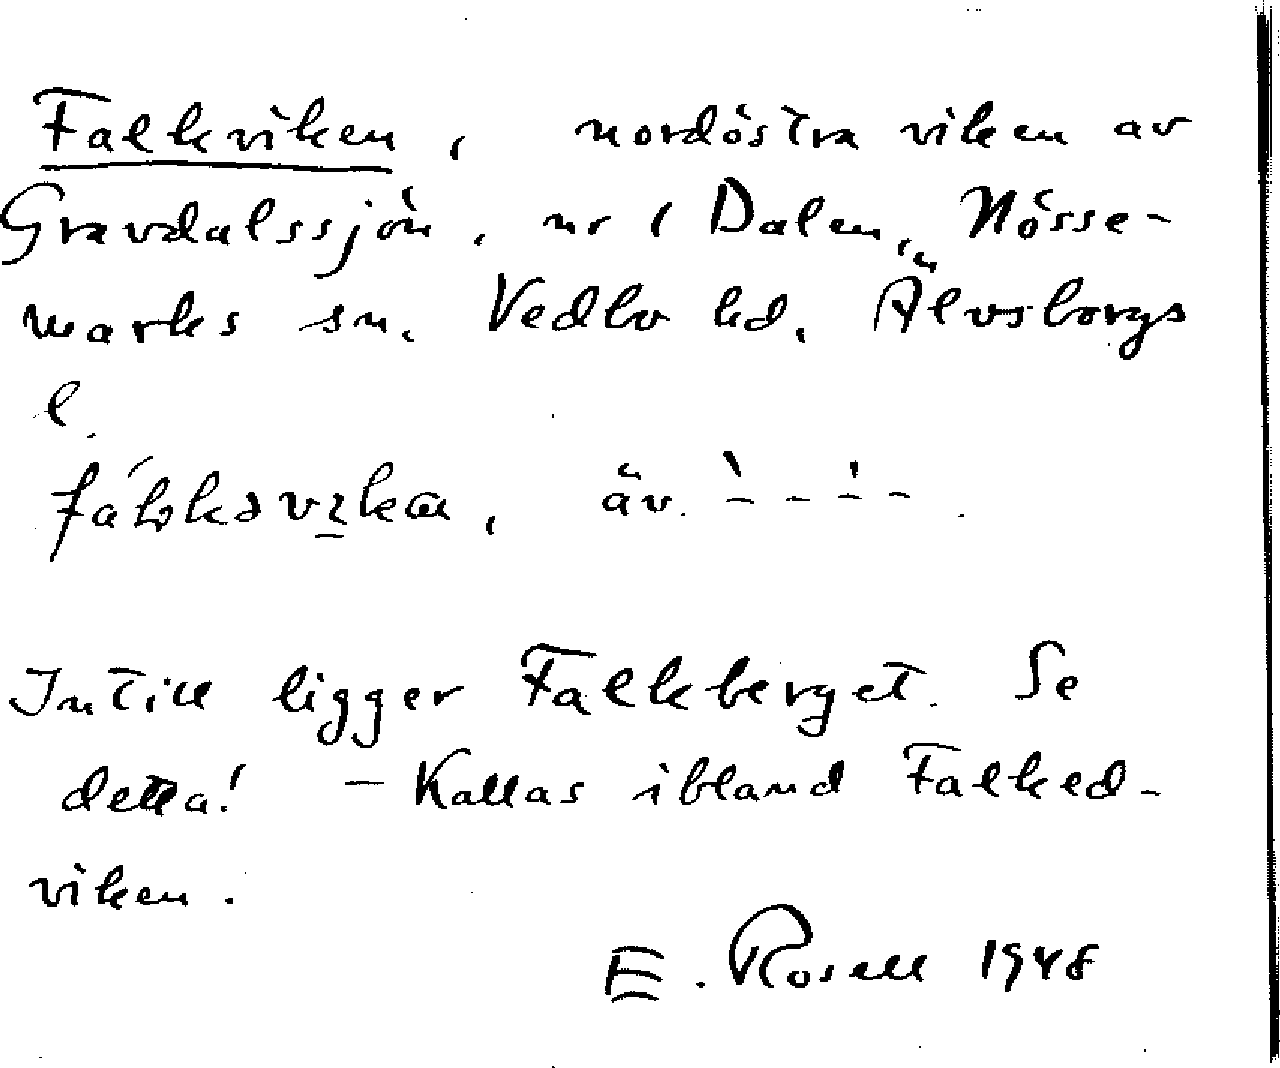 Falkviken, nordöstra viken av
Gravdalssjön, nr 1 Dalen, Nösse-
marks sn. Vedbo hd. Älvsborgs
l.
äv.
Intill ligger Falkberget. Se
detta! - Kallas ibland Falked-
viken.
E. Rosell 1948